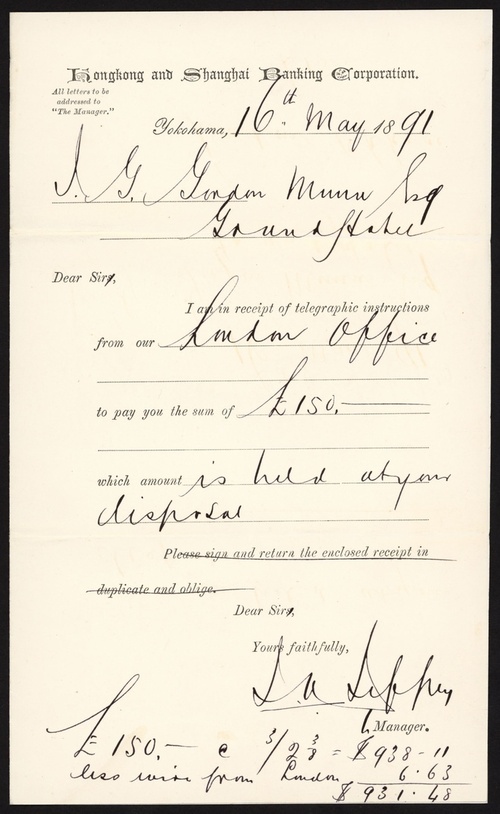 Hongkong and Shanghai Banking Corporation.
All letters to be
addressed to
"The Manager."
Yokohama, 16th May 1891
Gordon Munro Esq
Grand Hotel
Dear Sirs,
I am in receipt of telegraphic instructions
from our London Office
to pay you the sum of £150.
which amount is held at your
disposal
Please sign and return the enclosed receipt in
duplicate and oblige.
Dear Sirs,
Yours faithfully,
Manager.
£150.— @ 3/2 3/8 = $938-11
less wire from London 6.63
$931.48